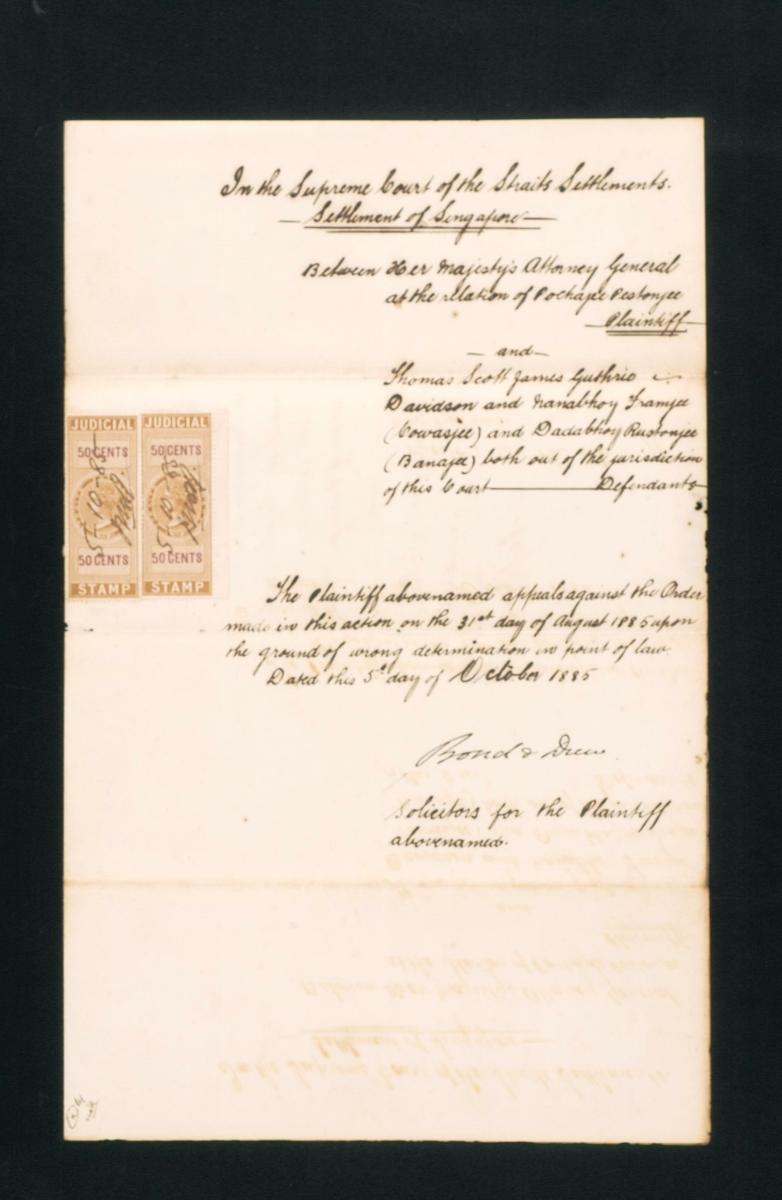 In the Supreme Court of the Straits Settlements.
Settlement of Singapore
Between Her Majesty's Attorney General
at the relation of Pochajee Pestonjee
Plaintiff
and
Thomas Scott James Guthrie
Davidson and Nanabhoy Framjee
(Cowasjee) and Dadabhoy Rustomjee
(Banajee) both out of the jurisdiction
of this Court Defendants
JUDICIAL
50 CENTS
50 CENTS
STAMP
JUDICIAL
50 CENTS
50 CENTS
STAMP
The Plaintiff abovenamed appeals against the Order
made in this action on the 31st day of August 1885 upon
the ground of wrong determination in point of law.
Dated this 5th day of October 1885
Bond & Drew
Solicitors for the Plaintiff
abovenamed.